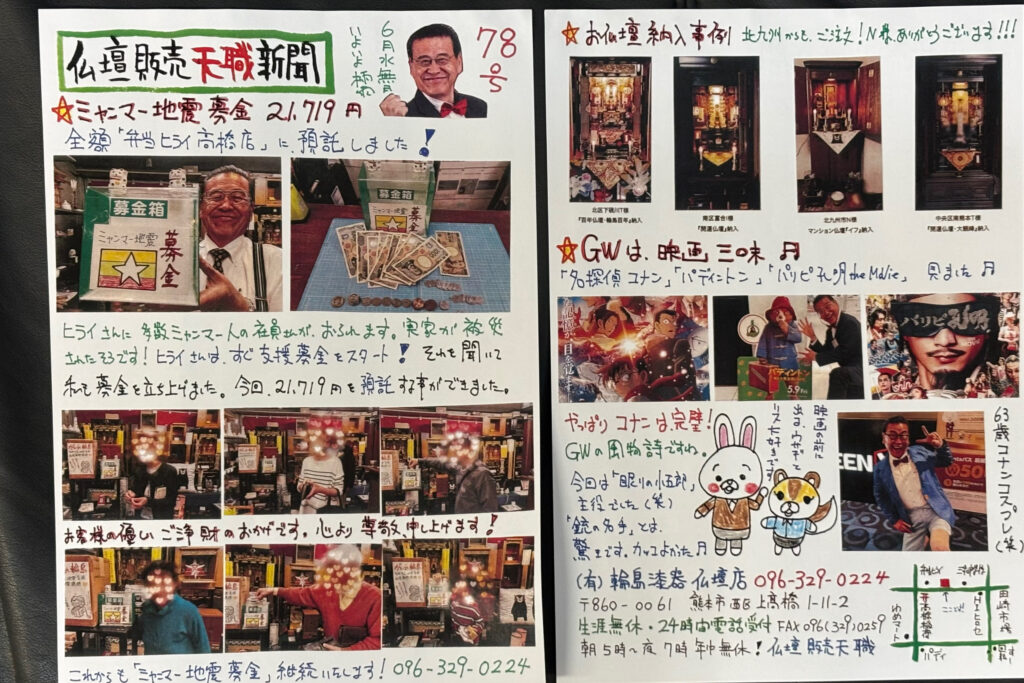 仏壇販売天職新聞
6月水無月
いよいよ梅雨
78号
ミャンマー地震募金 21,719円
全額「弁当ヒライ高橋店」に、預託しました!
募金箱
ミャンマー地震
募金
募金箱
ミャンマー地震
募金
ヒライさんに多数ミャンマー人の社員さんが、おられます。実家が被災
されたそうです!ヒライさんは、すぐ支援募金をスタート!それを聞いて
私も募金を立ち上げました。今回、21,719円を預託する事ができました。
お客様の優しいご浄財のおかげです。心より尊敬申し上げます!
これからも「ミャンマー地震募金」継続いたします!096-329-0224
お仏壇納入事例 北九州からも、ご注文!N様、ありがとうございます!!!
北区下硯川T様
「百年仏壇・輪島百年」納入
南区富合I様
「開運仏壇」納入
北九州市N様
マンション仏壇「イフ」納入
中央区南熊本T様
「開運仏壇・大銀峰」納入
GWは、映画三昧♪
「名探偵コナン」「パディントン」「パリピ孔明 the Movie」見ました♪
パディントン
5.9
パリピ孔明
やっぱりコナンは、完璧!
GWの風物詩ですね。
今回は「眠りの小五郎」
主役でした(笑)
「銃の名手」とは、
驚きです。カッコよかった♪
映画の前に
63歳コナンコスプレ(笑)
(有)輪島漆器仏壇店 096-329-0224
〒860-0061 熊本市西区上高橋1-11-2
生涯無休・24時間電話受付 FAX096(329)0259
朝5時~夜7時 年中無休!仏壇販売天職
ここ
ゆめマート
田崎市場